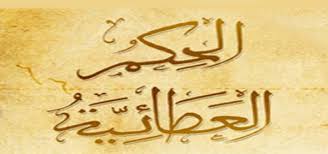 الحكم
العَطَائِيَّةُ